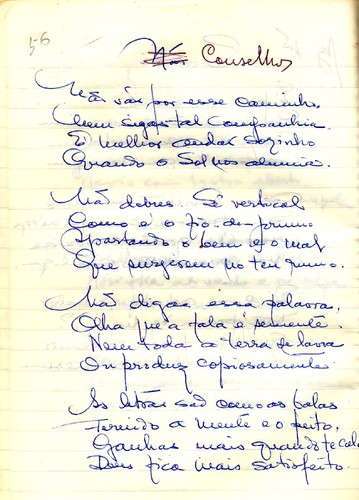 56
Conselhos
Não vás por esse caminho,
Nem sigas tal companhia.
É melhor andar sozinho
Quando o Sol nos alumia.
Não dobres. Sê vertical
Como é o fio-de-prumo
Apartando o bem e o mal
Que surgirem no teu rumo.
Não digas essa palavra,
Olha que a fala é semente.
Nem toda a terra de lavra
Ou produz copiosamente
As letras são como as balas
Ferindo a mente e o peito.
Ganhas mais quando te calas
Deus fica mais satisfeito.